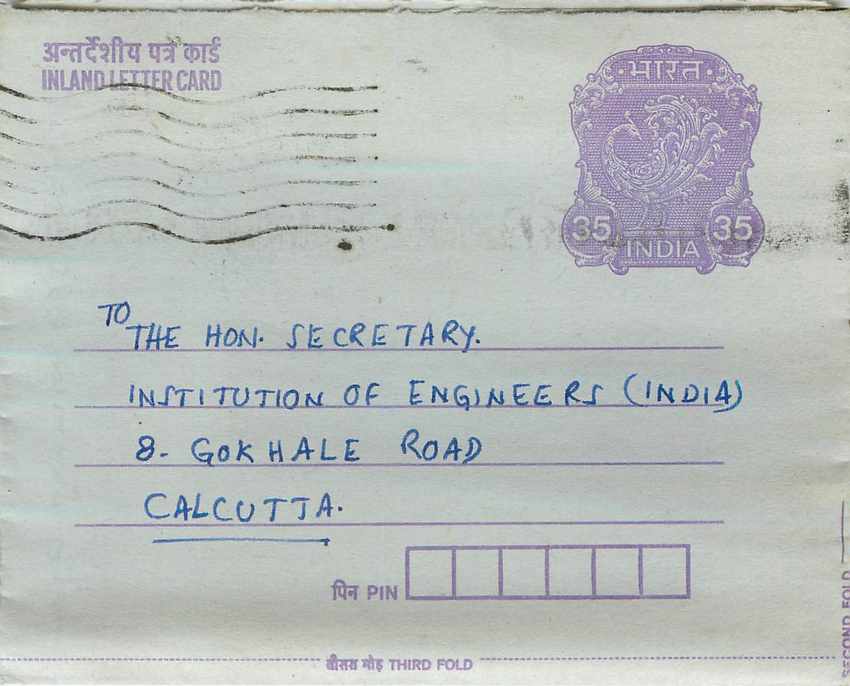 अन्तर्देशीय पत्र कार्ड
INLAND LETTER CARD
भारत
35 35
INDIA
TO
THE HON. SECRETARY.
INSTITUTION OF ENGINEERS (INDIA)
8- GOKHALE ROAD
CALCUTTA.
पिन PIN
तीसरा मोड़ THIRD FOLD
SECOND FOLD